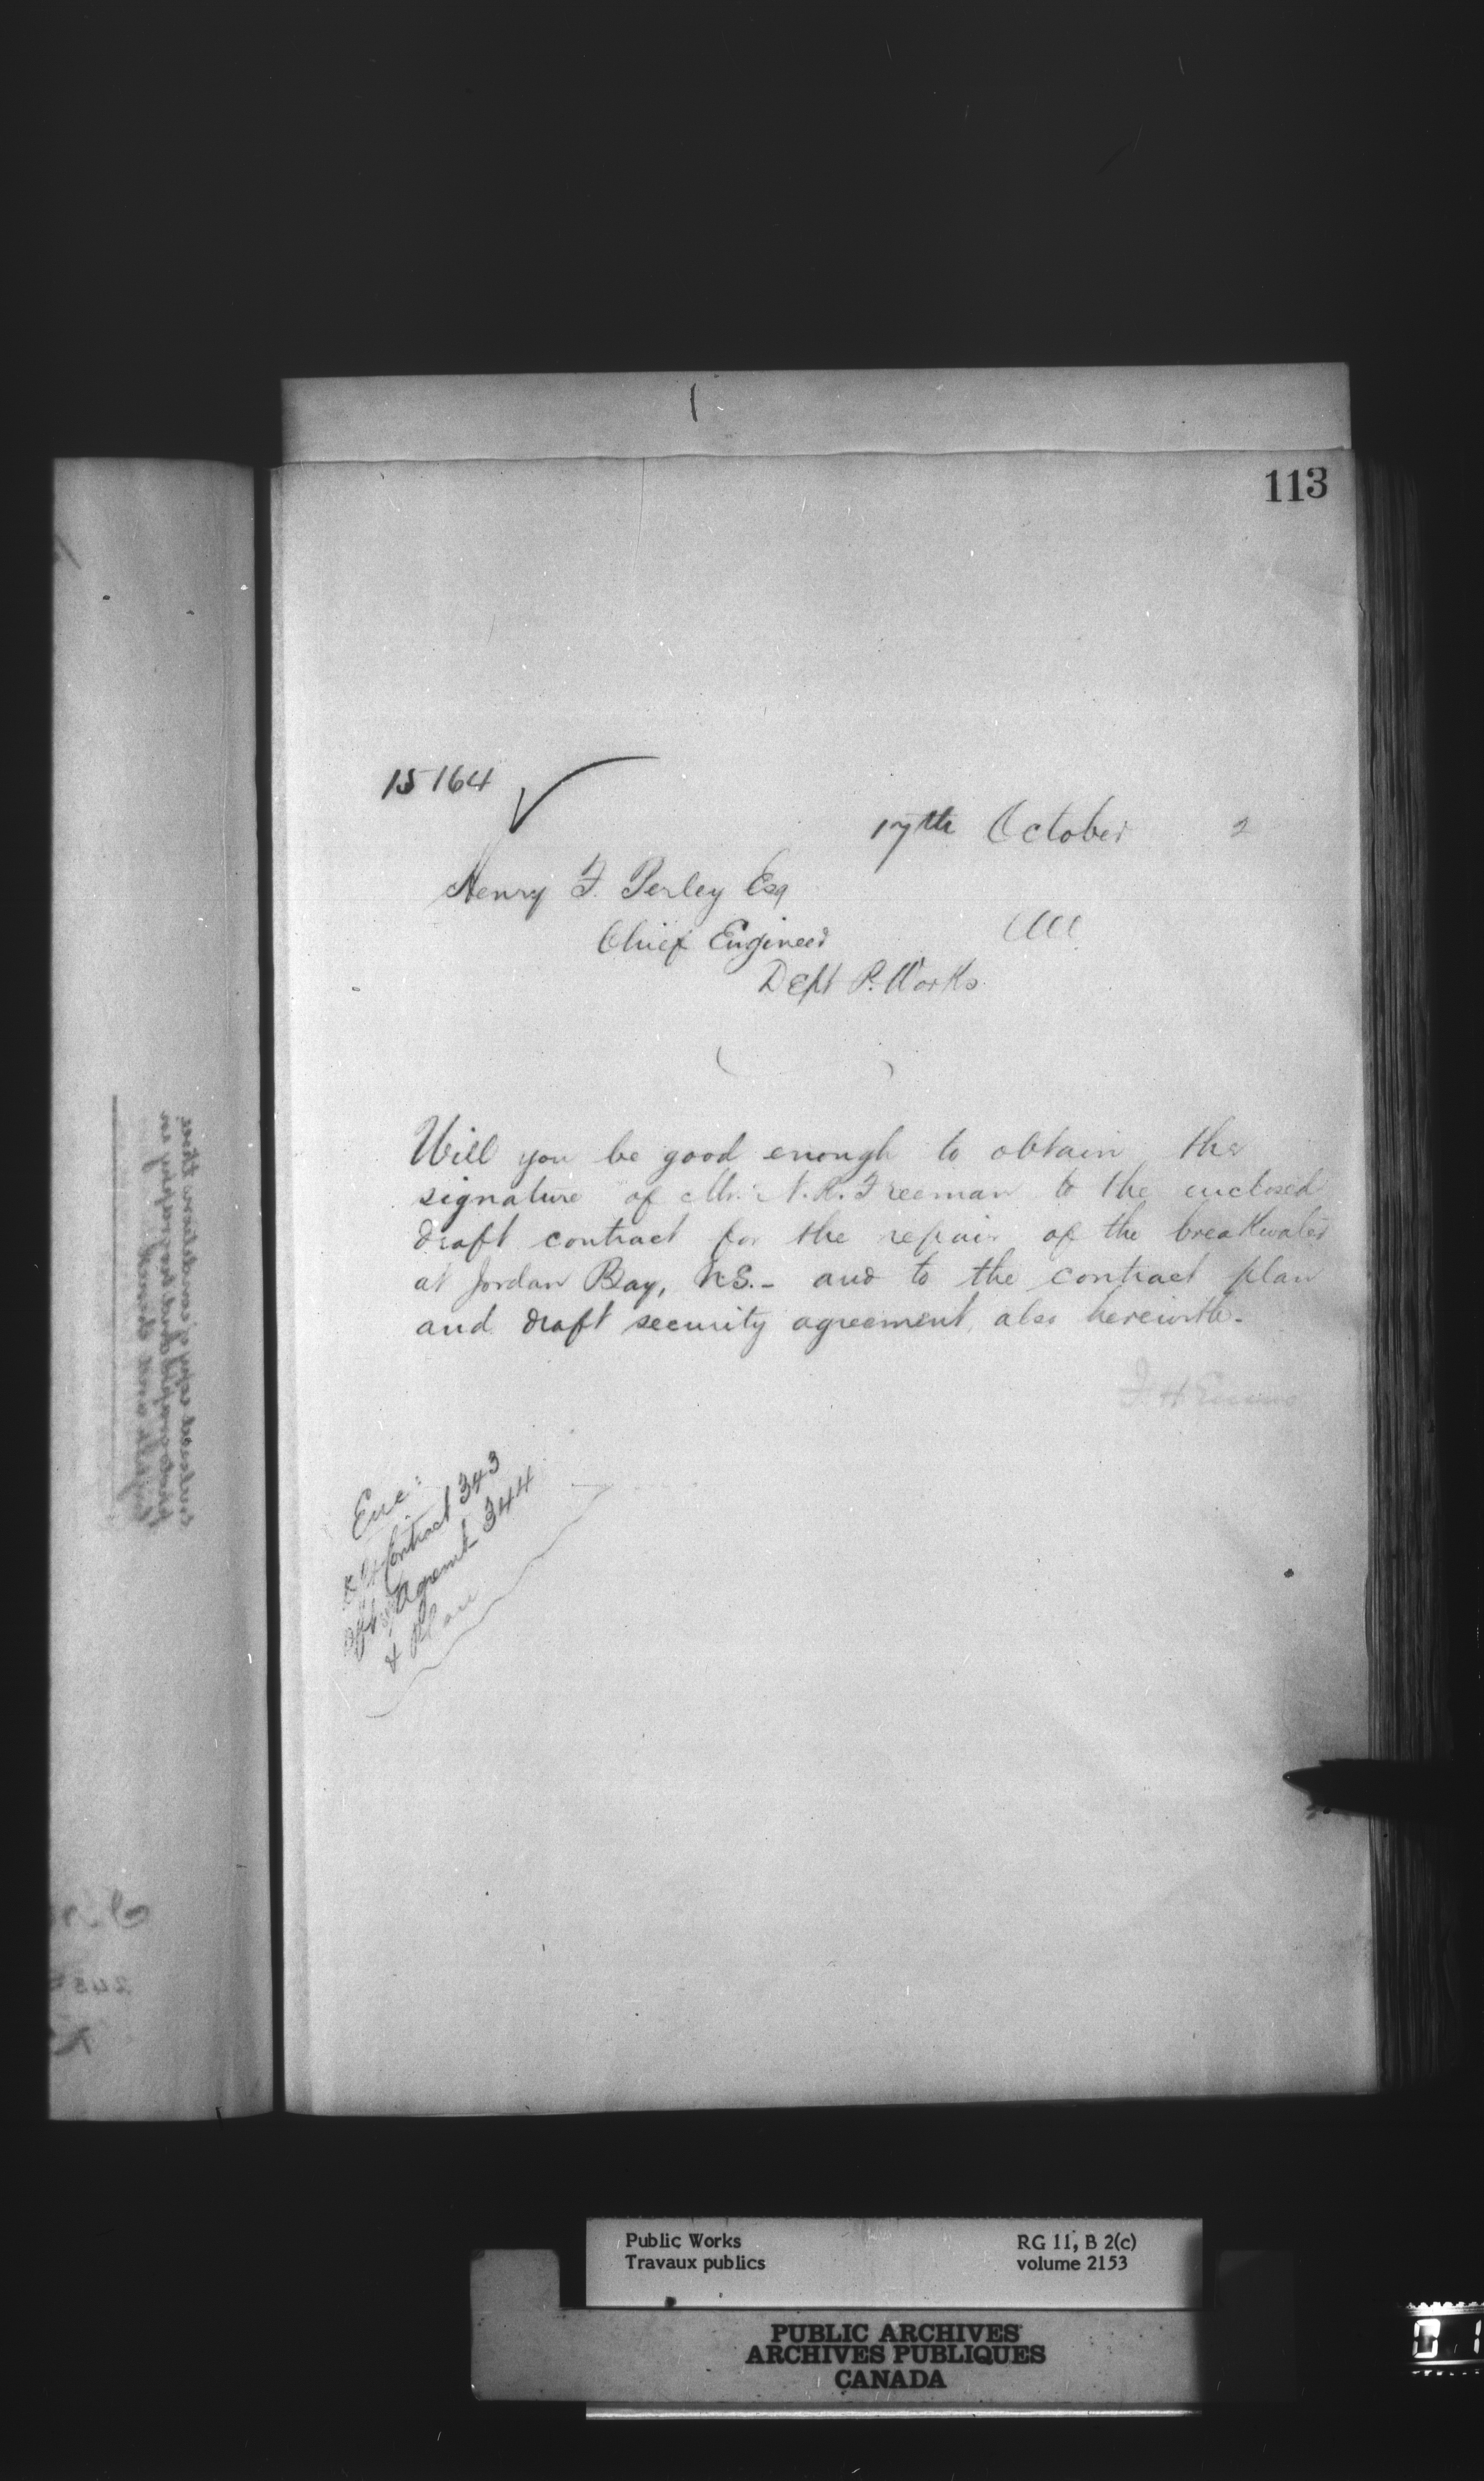 113
15164
17th October 2
Henry F. Perley Esq
Chief Engineer
Dept P. Works
Will you be good enough to obtain the
signature of Mr. N. R. Freeman to the enclosed
draft contract for the repair of the breakwater
at Jordan Bay, N.S. - and to the contract plan
and draft security agreement also herewith.
F H Ennis
Enc:
Contract 343
Agremt 344
& Plan
Public Works
Travaux publics
RG 11, B 2(c)
volume 2153
PUBLIC ARCHIVES
ARCHIVES PUBLIQUES
CANADA